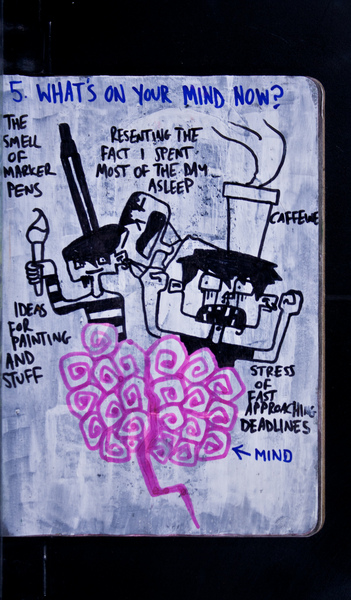 5. WHAT'S ON YOUR MIND NOW?
THE
SMELL
OF
MARKER
PENS
RESENTING THE
FACT I SPENT
MOST OF THE DAY
ASLEEP
CAFFEINE
IDEAS
FOR
PAINTING
AND
STUFF
STRESS
OF
FAST
APPROACHING
DEADLINES
← MIND